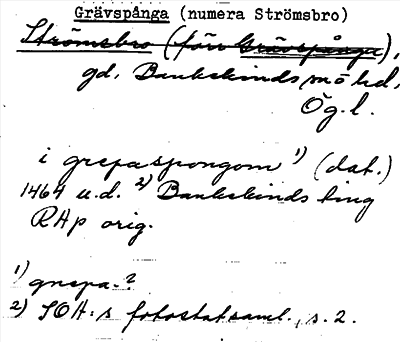 Grävspånga (numera Strömsbro)
Strömsbro (förr Grävspånga),
gd, Bankekinds sn o hd,
Ög. l.
i grepaspongom 1) (dat.)
1464 u.d. 2) Bankekinds ting
RAp orig.
1) gnepa-?
2) SOA:s fotostatsaml., s. 2.